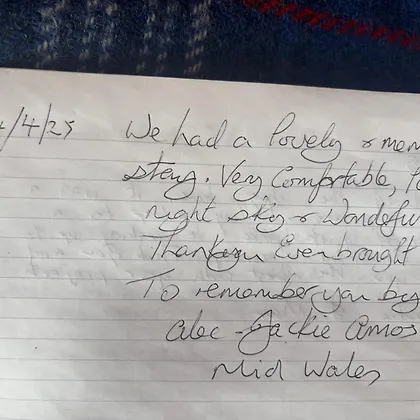 /4/25 We had a lovely & mem
stay. Very Comfortable, 
night sky & Wonderfu
Thankyou Even brought
To remember you by
alec - Jackie Amos
Mid Wales